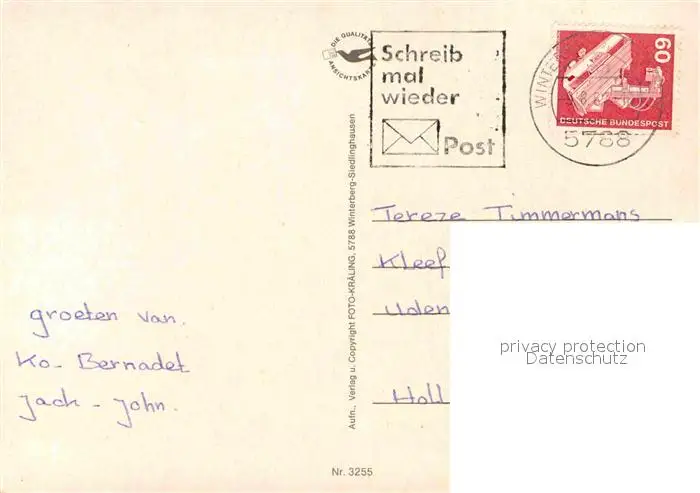 DIE QUALITÄTS
ANSICHTSKARTE
Schreib
mal
wieder
Post
WINTER
60
DEUTSCHE BUNDESPOST
5788
Aufn., Verlag u. Copyright FOTO-KRÄLING, 5788 Winterberg-Siedlinghausen
Tereze Timmermans
Kleef
Uden
Holl
groeten van.
Ko - Bernadet
Jack - John.
privacy protection
Datenschutz
Nr. 3255